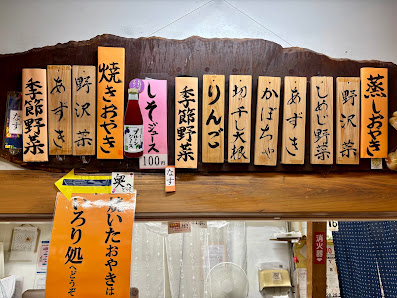 蒸しおやき
野沢菜
しめじ野菜
あずき
かぼちゃ
切干大根
りんご
季節野菜
なす
しそジュース
100円
焼きおやき
野沢菜
あずき
季節野菜
なす
いたおやきは
ろり処
へどうぞ
消火器
16